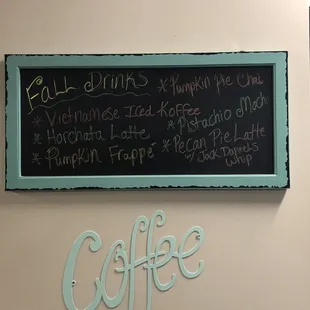 Fall Drinks
* Pumpkin Pie Chai
* Vietnamese Iced Koffee
* Pistachio Moch
* Horchata Latte
* Pecan Pie Latte
w/ Jack Daniels
Whip
* Pumpkin Frappé
Coffee